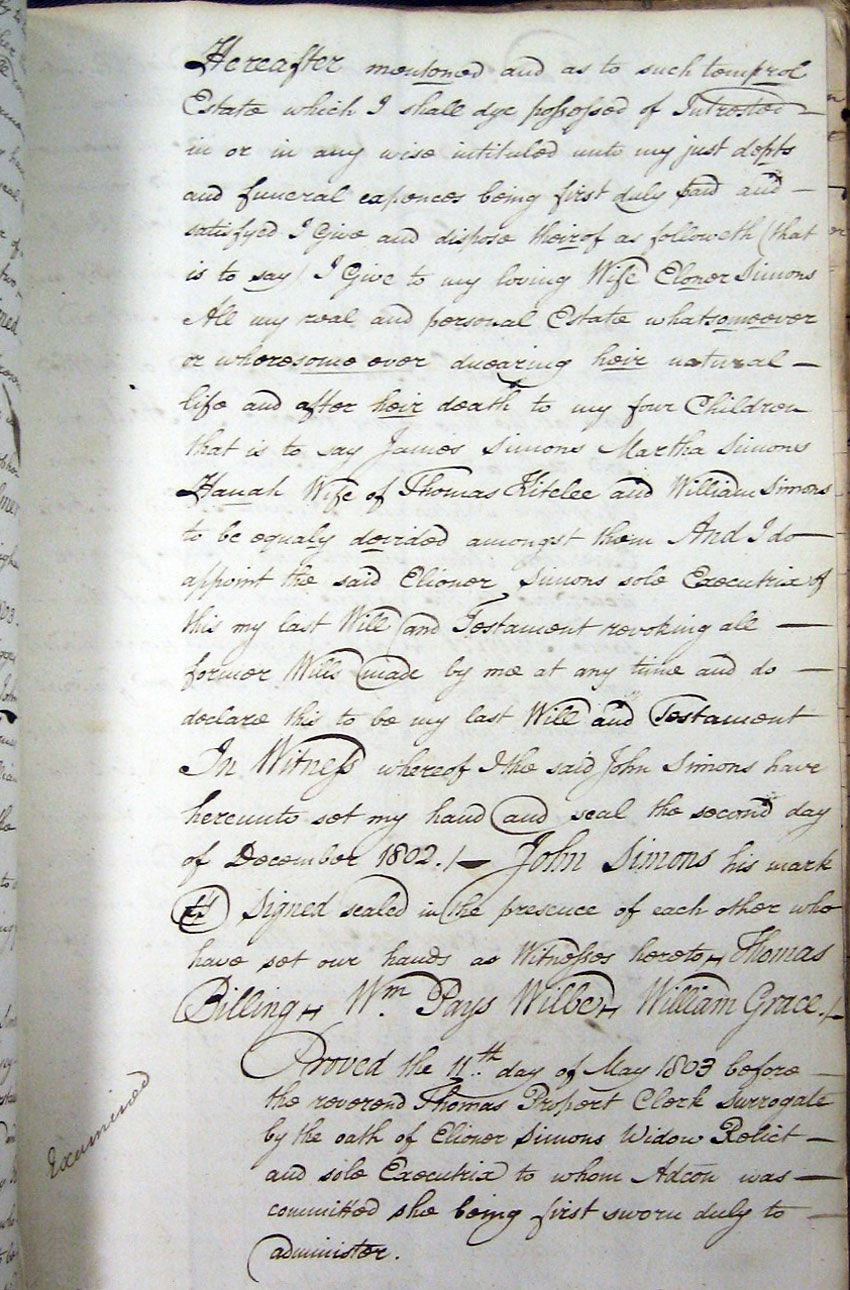 Hereafter mentoned and as to such temprol
Estate which I shall dye possessed of Intrested
in or in any wise intituled unto my just depts
and funeral expences being first duly paid and
satisfyed I Give and dispose theirof as followeth (that
is to say) I Give to my loving Wife Eloner Simons
All my real and personal Estate whatsomeever
or wheresome ever duearing heir natural
life and after heir death to my four Children
that is to say James Simons Martha Simons
Hanah Wife of Thomas Kitelee and William Simons
to be equaly devided amongst them And I do
appoint the said Elioner Simons sole Executrix of
this my last Will and Testament revoking all
former Wills made by me at any time and do
declare this to be my last Will and Testament
In Witness whereof I the said John Simons have
hereunto set my hand and seal the second day
of December 1802./ John Simons his mark
Signed sealed in the presence of each other who
have set our hands as Witnesses hereto Thomas
Billing Wm. Pays Wilber William Grace./
Proved the 11th. day of May 1803 before
the reverend Thomas Propert Clerk Surrogate
by the oath of Elioner Simons Widow Relict
and sole Executrix to whom Adcon was
committed she being first sworn duly to
administer.
Examined